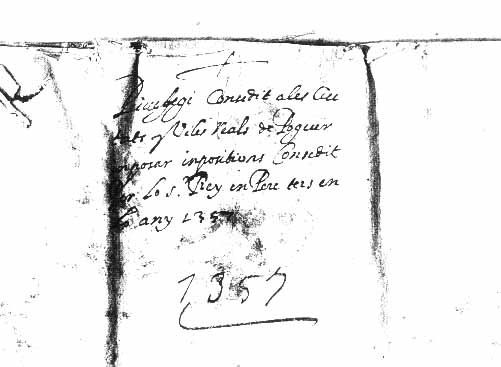 Privilegi Consedit a les Ciu
tats y Viles Reals de Poguer
inposar inpositions Consedit
per lo s. Rey en Pere ters en
lo any 1357
1357